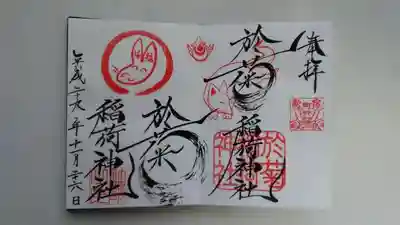 奉拝
於菊
稲荷神社
於菊
稲荷神社
於菊
神社
平成二十九年十一月二十六日